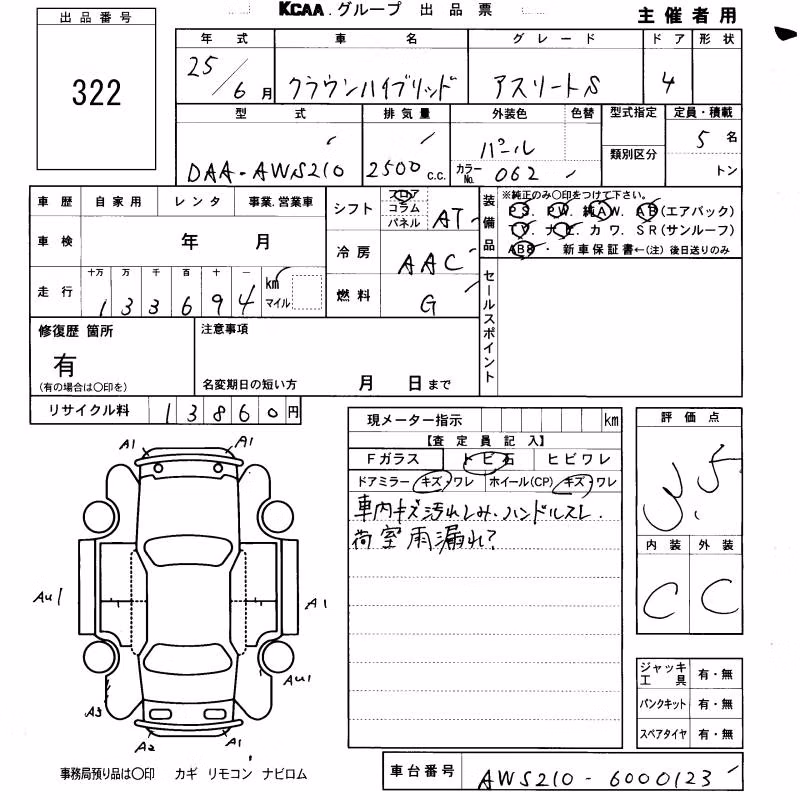 出品番号
322
KCAA.グループ 出品票
主催者用
年式 車名 グレード ドア 形状
25/6月 クラウンハイブリッド アスリートS 4
型式 排気量 外装色 色替 型式指定 定員・積載
DAA-AWS210 2500 c.c. パール 5名
カラーNo. 062 類別区分 トン
車歴 自家用 レンタ 事業.営業車
車検 年 月
走行 十万 万 千 百 十 一
133694 km マイル
シフト フロア コラム パネル AT
冷房 AAC
燃料 G
装備品 ※純正のみ○印をつけて下さい。
PS. PW. 純AW. AB(エアバック)
TV. ナビ. カワ. SR(サンルーフ)
ABS・ 新車保証書←(注) 後日送りのみ
セールスポイント
修復歴 箇所
有
(有の場合は○印を)
注意事項
名変期日の短い方 月 日まで
リサイクル料 13860円
現メーター指示 km
【査定員記入】
Fガラス トビ石 ヒビワレ
ドアミラー キズ・ワレ ホイール(CP) キズ・ワレ
車内キズ汚れしみ.ハンドルスレ.
荷室雨漏れ?
評価点
3.5
内装 外装
C C
A1 A1
AU1 A1
AU1
A3
A2 A1
ジャッキ工具 有・無
パンクキット 有・無
スペアタイヤ 有・無
事務局預り品は○印 カギ リモコン ナビロム
車台番号 AWS210-6000123